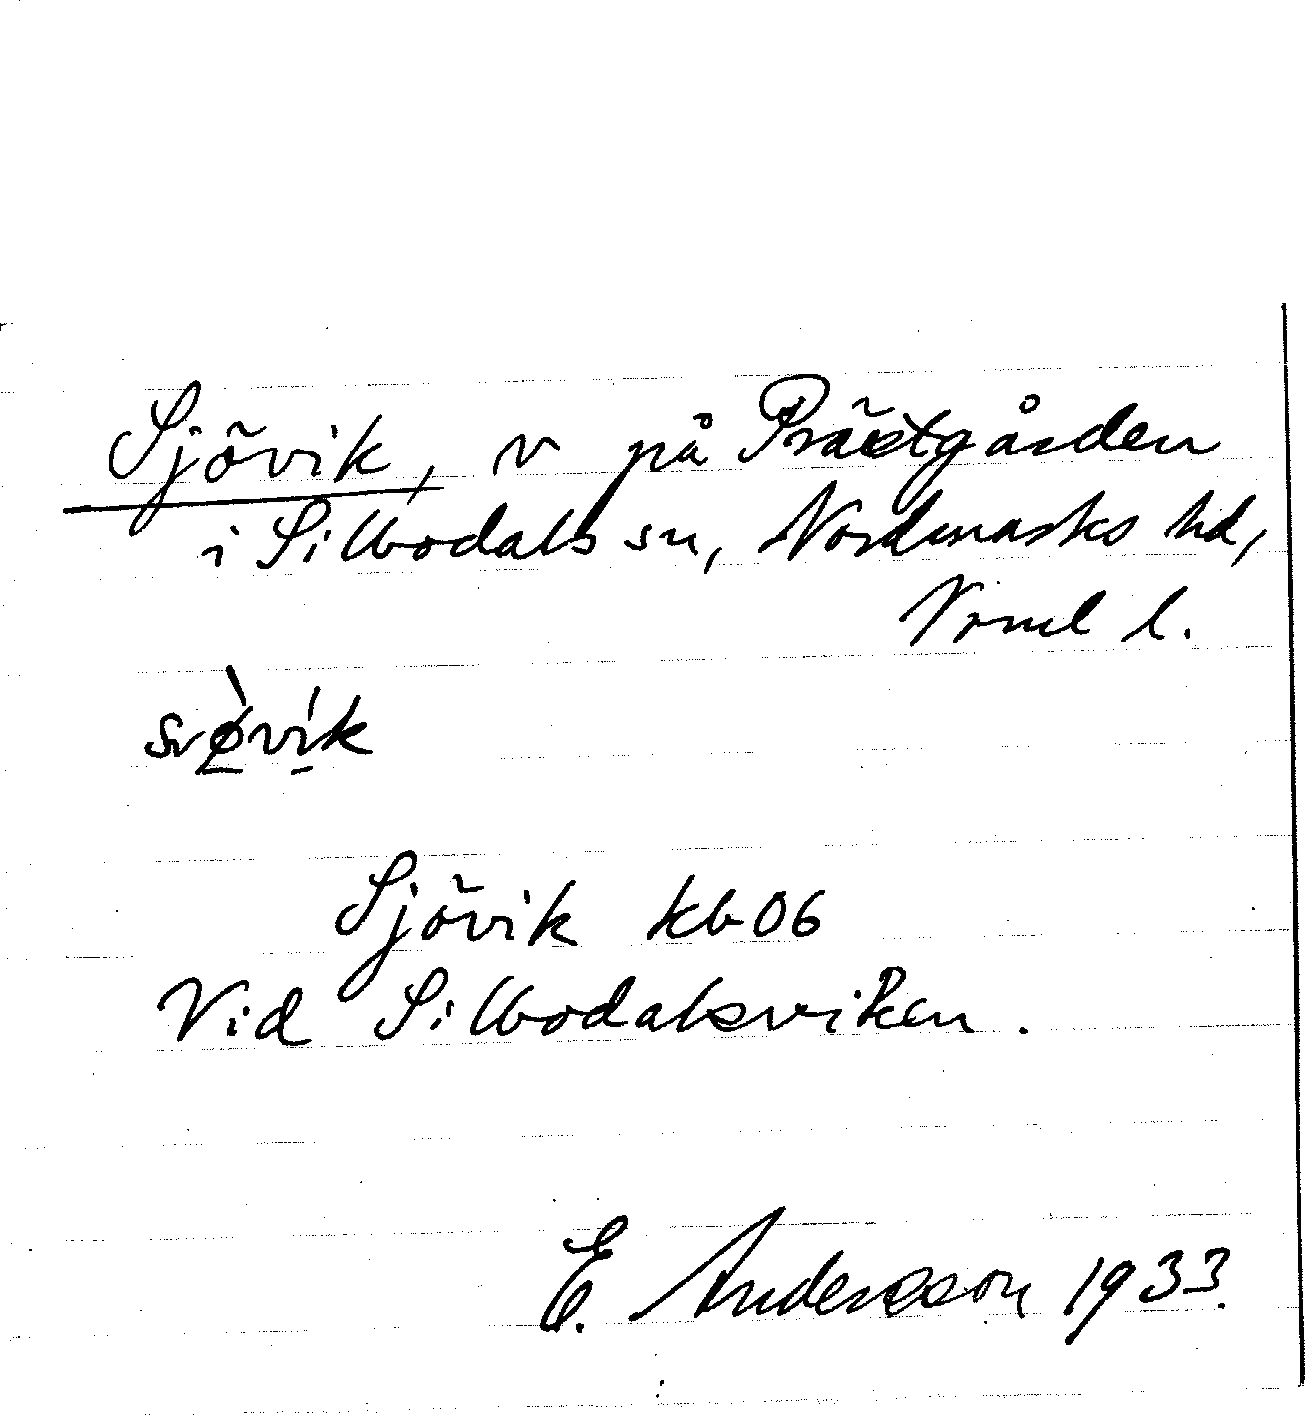 Sjövik, v på Prästgården
i Silbodals sn, Nordmarks hd,
Vrml l.
Sjövik kb 06
Vid Silbodalsviken.
E. Andersson 1933.